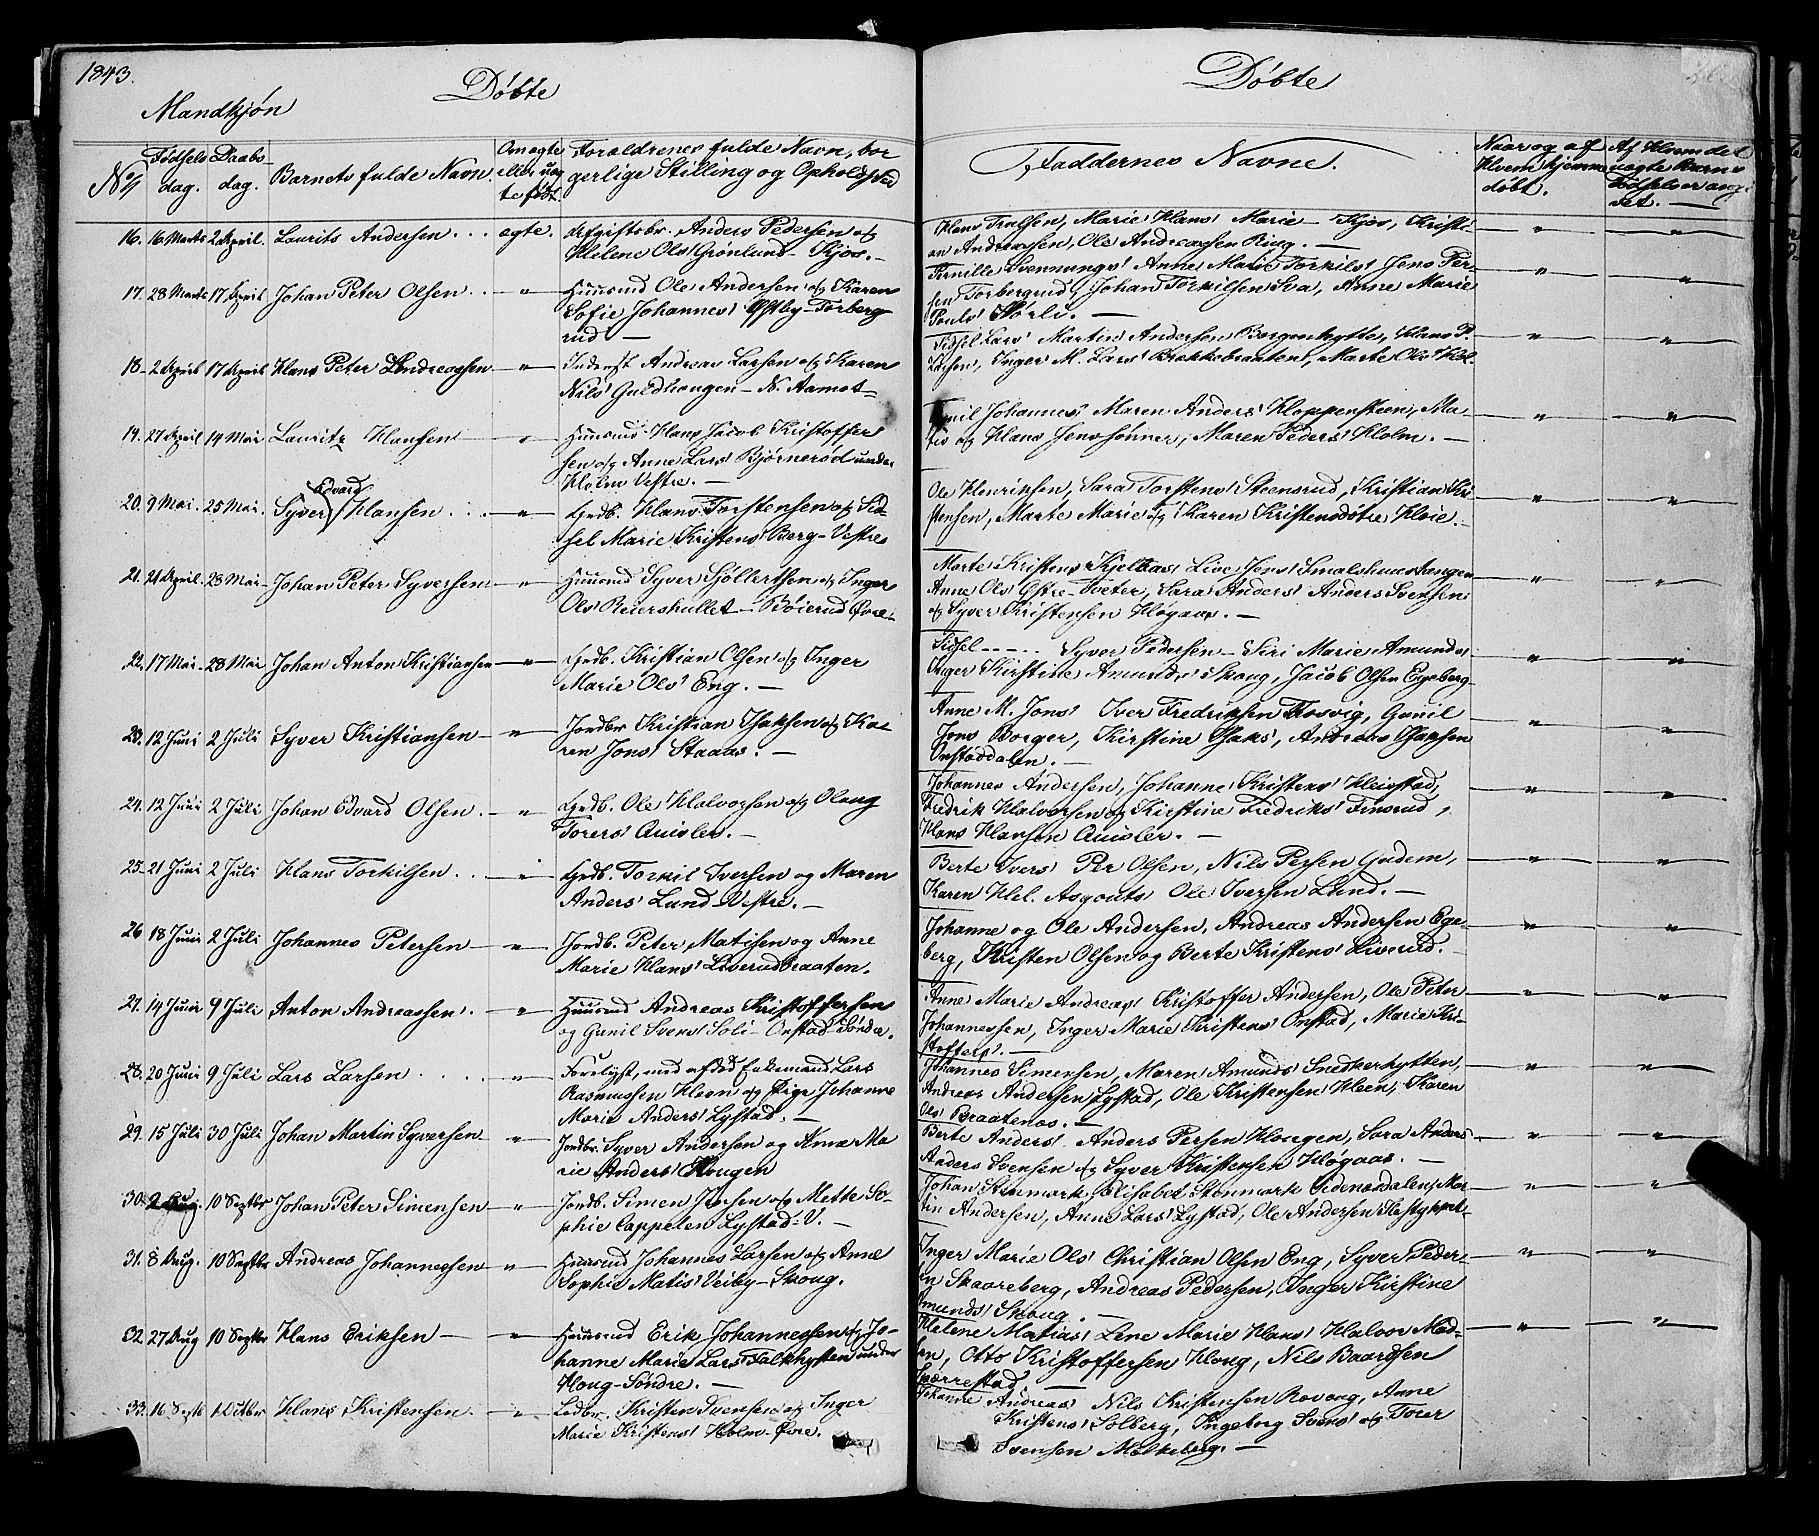 1843.
Døbte
Mandkjøn
No
Fødsels
dag.
Daabs-
dag.
Barnets fulde Navn.
Om ægte
eller uæg
te født.
Forældrenes fulde Navn, bor
gerlige Stilling og Opholdsted
16. 16 Marts 2 April. Laurits Andersen . . . ægte. Afgiftsbr. Anders Pedersen og
Helene Ols' Grønlund - Kjos. —
17. 28 Marts 17 April Johan Peter Olsen . . " Huusmd Ole Andersen og Karen
Sofie Johannes' Østby - Torberg
rud —
18. 2 April 17 April Hans Peter Andreassen — " — Inderst Andreas Larsen og Karen
Nils' Guldhaugen - N. Aamot -
19. 27 April 14 Mai Lauritz Hansen " Huusmd Hans Jacob Kristoffer
sen og Anne Lars' Bjørnerød under
Holm Vestre. —
Edvard
20. 9 Mai. 25 Mai. Syver Hansen . . . — " — Grdb. Hans Torstensen og Sid
sel Marie Kristens' Berg - Vestre
21. 21 April. 28 Mai - Johan Peter Syversen — " — Huusmd Syver Sjøllertsen og Inger
Ols' Reiershullet - Bøierud Øvre -
22. 17 Mai - 28 Mai Johan Anton Kristiansen — " — Grdb. Kristian Olsen og Inger
Marie Ols' Eng. —
23. 12 Juni 2 Juli Syver Kristiansen — " — Jordbr. Kristian Isaksen og Ka-
ren Jons' Staaas. —
24. 12 Juni 2 Juli Johan Edvard Olsen . — " — Grdb. Ole Halvorsen og Oloug
Torers' Quisler. —
25. 21 Juni 2 Juli Hans Torkilsen . . . " Grdb. Torkil Iversen og Maren
Anders' Lund - Vestre. —
26 18 Juni 2 Juli Johannes Petersen — " — Jordb. Peter Matisen og Anne
Marie Hans' Liverudbraaten.
27. 14 Juni 9 Juli Anton Andreassen . — " — Huusmd Andreas Kristoffersen
og Gunil Svens' Soli - Onstad - Søndre.
28. 20 Juni 9 Juli Lars Larsen . . . . — " — Forelgst, med afdød Enkemand Lars
Rasmussen Kleen og Pige Johanne
Marie Anders' Lystad. —
29. 15 Juli 30 Juli Johan Martin Syversen — " — Jordbr. Syver Andersen og Anne Ma
rie Anders' Hougen
30. 2 Aug. 10 Septbr Johan Peter Simensen — " — Jordb. Simen Jensen og Mette So-
phie Cappelen Lystad - V. —
31. 8 Aug. 10 Septbr Andreas Johannessen — " — Huusmd Johannes Larsen og Anne
Sophie Matis' Veiby - Skoug.
32 27 Aug 10 Septbr Hans Eriksen — " — Huusmd Erik Johannessen og Jo-
hanne Marie Lars' Falkhytten under
Houg - Søndre. —
33. 16 Sept 1 Octbr Hans Kristensen . . — " — Ledbr. Kristen Svensen og Inger
Marie Kristens' Holm - Øvre.
Døbte
Faddernes Navne.
Naar og af
Hvem hjemme
døbt.
Af Hvem det
uægte Barns
Fødsel er ang
vet. —
Hans Trulsen, Marie Hans' Marie - Kjos, Kristi-
an Andreassen, Ole Andreassen Ring. — " "
Pernille Svennungs' Anne Marie Torkils' Jens Per-
sen Torbergrud, Johan Torkilsen Sva, Anne Marie
Pouls' Hørli. — " "
Sidsel Lars' Martin Andersen Borgenhytte, Hans P.
Larsen, Inger M. Lars' Brekkebraaten, Marte Ols' Hol. " "
Gunil Johannes' Maren Anders' Kloppensteen, Ma
tis og Hans Jens sønner, Maren Peders' Holm. — " "
Ole Henriksen, Sara Torstens' Steensrud, Kristian Kri
stensen, Marte Marie og Karen Kristensdøtre Hoie. " "
Marte Kristens' Kjelsaas' Live Jens' Smalshuushaugen
Anne Ols' Østre - Tveter, Sara Anders' Anders Svensen
og Syver Kristensen Høgaas. — " "
Sidsel - - - - Syver Pedersen - Siri Marie Amunds'
Inger Kirstine Amunds' Skoug, Jacob Olsen Egeberg " "
Anne M. Jons' Iver Fredriksen Fosvig, Gunil
Jons' Borger, Kirstine Isaks', Andreas Isaksen
Onstaddalen. — " "
Johannes Andersen, Johanne Kristens' Kleivstad,
Fredrik Halvorsen og Kirstine Fredriks' Finsrud,
Hans Hansen Quisler. — " "
Berte Ivers' Per Olsen, Nils Persen Gudem,
Karen Hel. Asgouts' Ole Iversen Lund. — " "
Johanne og Ole Andersen, Andreas Andersen Ege-
berg, Kristen Olsen og Berte Kristens' Liverud. " "
Anne Marie Andreas' Kristoffer Andersen, Ole Peter
Johannessen, Inger Marie Kristens' Onstad, Marie Kri-
stoffers'. — " "
Johannes Simensen, Maren Amunds' Snekkerhytten,
Andreas Andersen Lystad, Ole Kristensen Kleen, Karen
Ols' Braatenas. — " "
Berte Anders' Anders Persen Hougen, Sara Anders'
Anders Svensen og Syver Kristensen Høgaas. — " "
Johan Stenmark Elisabet Stenmark Gidenasdalen, Mar-
tin Andersen, Anne Lars' Lystad, Ole Andersen " "
Inger Marie Ols' Christian Olsen Eng, Syver Peder-
sen Skaareberg, Andreas Pedersen, Inger Kirstine
Amunds' Skoug. — " "
Helene Matias' Lene Marie Hans' Halvor Mad-
sen, Otto Kristoffersen Houg, Nils Baardsen
Sparrestad — " "
Johanne Andreas' Nils Kristensen Rovoug, Anne
Kristens' Solberg, Ingeborg Svens' og Torer
Svensen Melkeberg. —